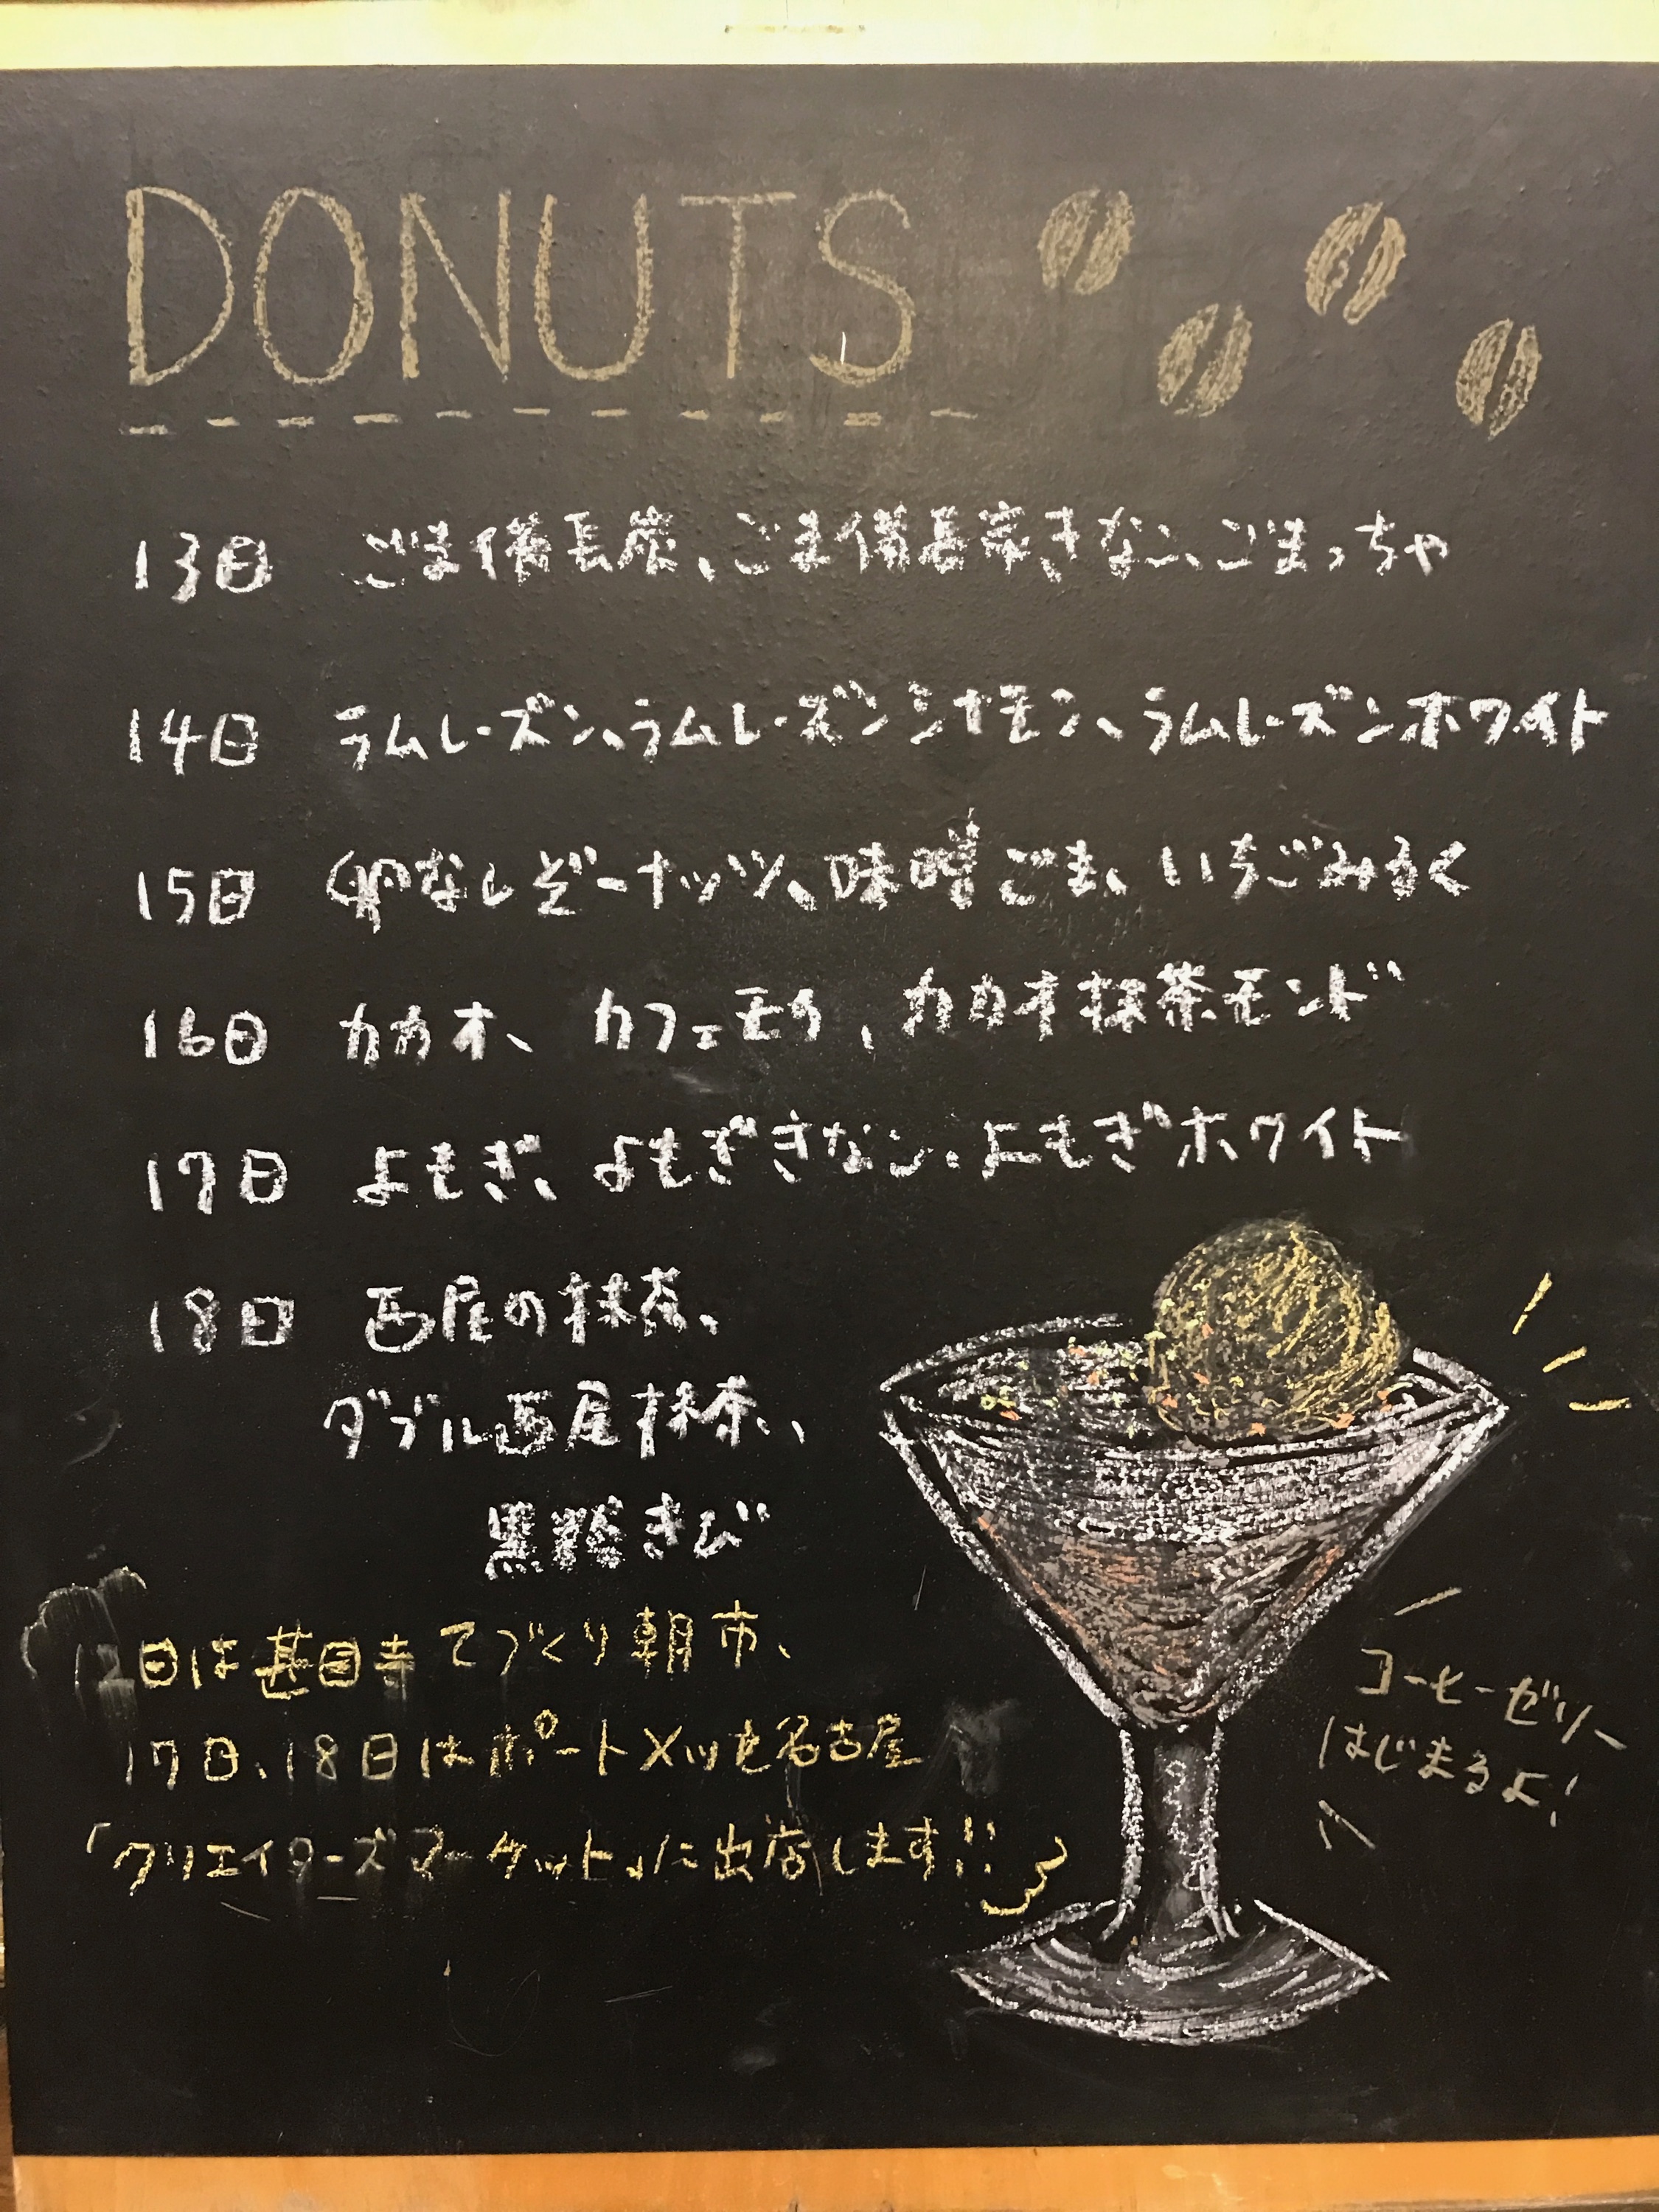 DONUTS
13日 ごま備長炭、ごま備長炭きなこ、ごまっちゃ
14日 ラムレーズン、ラムレーズンシナモン、ラムレーズンホワイト
15日 卵なしどーナッツ、味噌ごま、いちごみるく
16日 カカオ、カフェモカ、カカオ抹茶モンド
17日 よもぎ、よもぎきなこ、よもぎホワイト
18日 西尾の抹茶、
ダブル西尾抹茶、
黒糖きび
12日は甚目寺てづくり朝市、
17日、18日はポートメッセ名古屋
「クリエイターズマーケット」に出店します!!
コーヒーゼリー
はじまるよ!